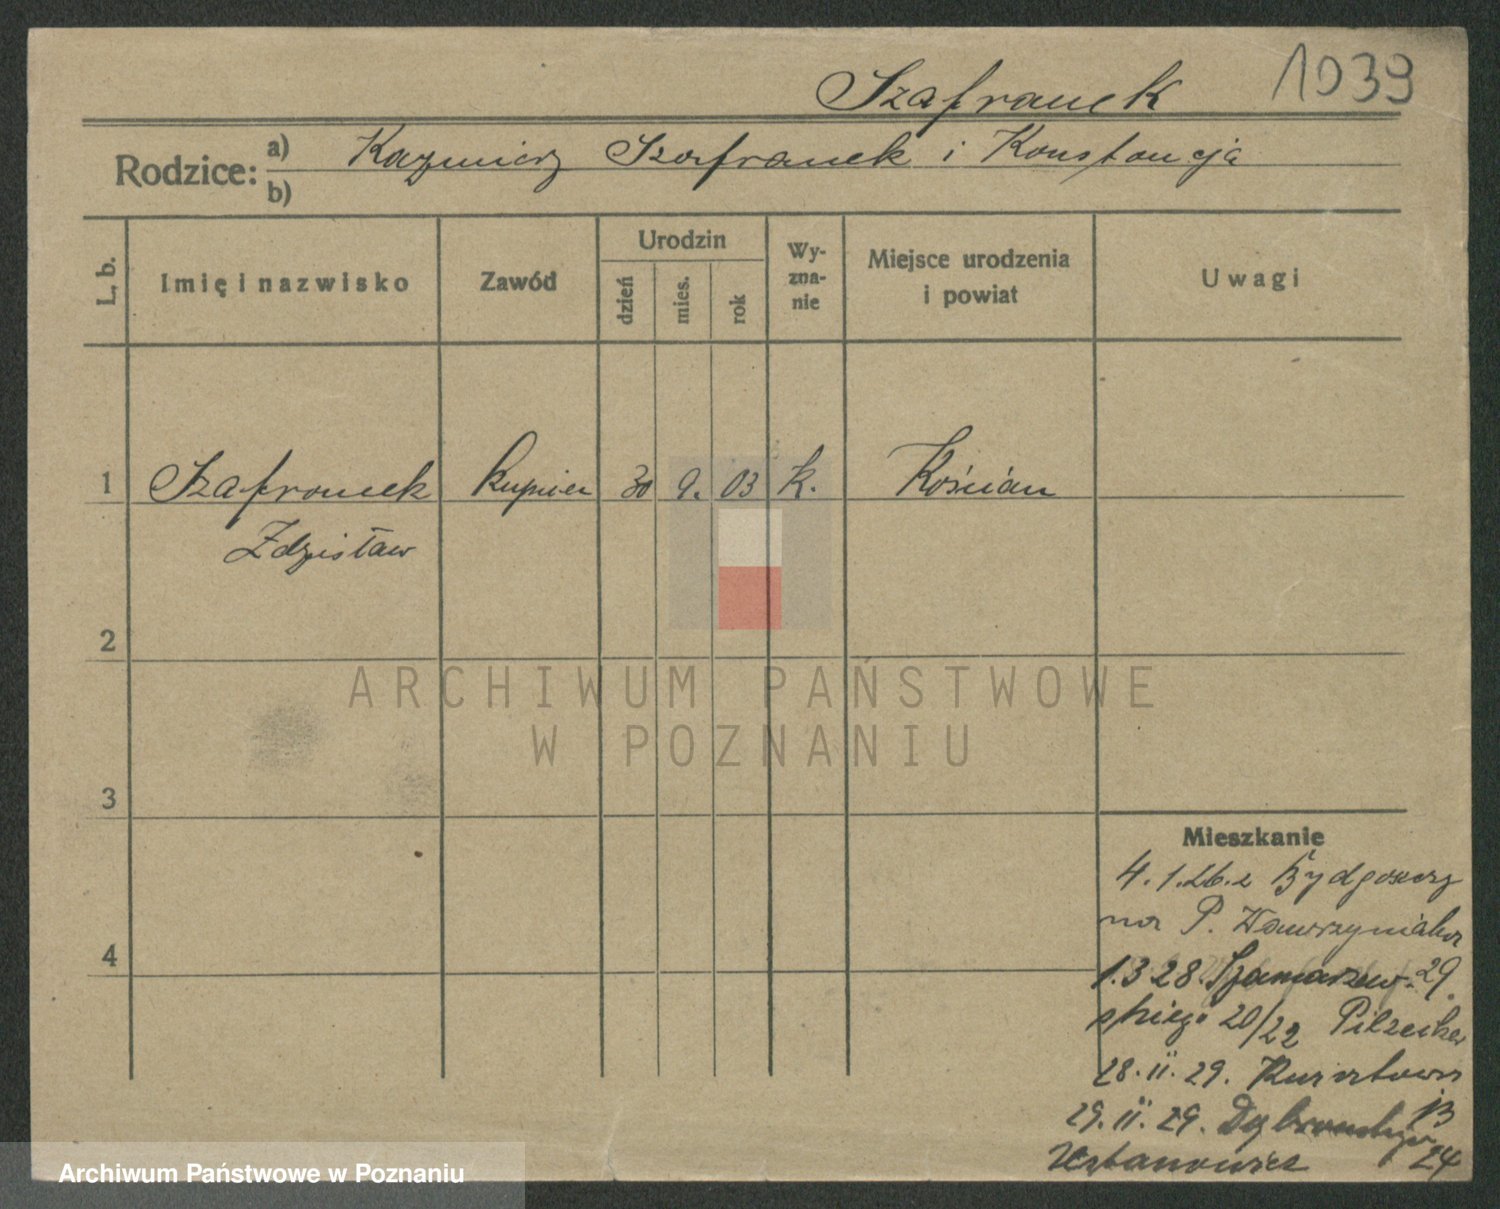 1039
Szafranek
Rodzice: a) Kazmierz Szafranek i Konstancja
b)
L. b.
Imię i nazwisko
Zawód
Urodzin
dzień
mies.
rok
Wy-
zna-
nie
Miejsce urodzenia
i powiat
Uwagi
1 Szafranek kupiec 30 9. 03 k. Kościan
Zdzisław
2
3
4
Mieszkanie
4.1.26. z Bydgoszczy
P. Wawrzyniaka
29.
1.3 28. Szamarzew-
skiego 20/22 Pilzecker
28.II.29.
13
29.II.29. Dąbrowskiego
24
Urbanowicz
ARCHIWUM PAŃSTWOWE
W POZNANIU
Archiwum Państwowe w Poznaniu